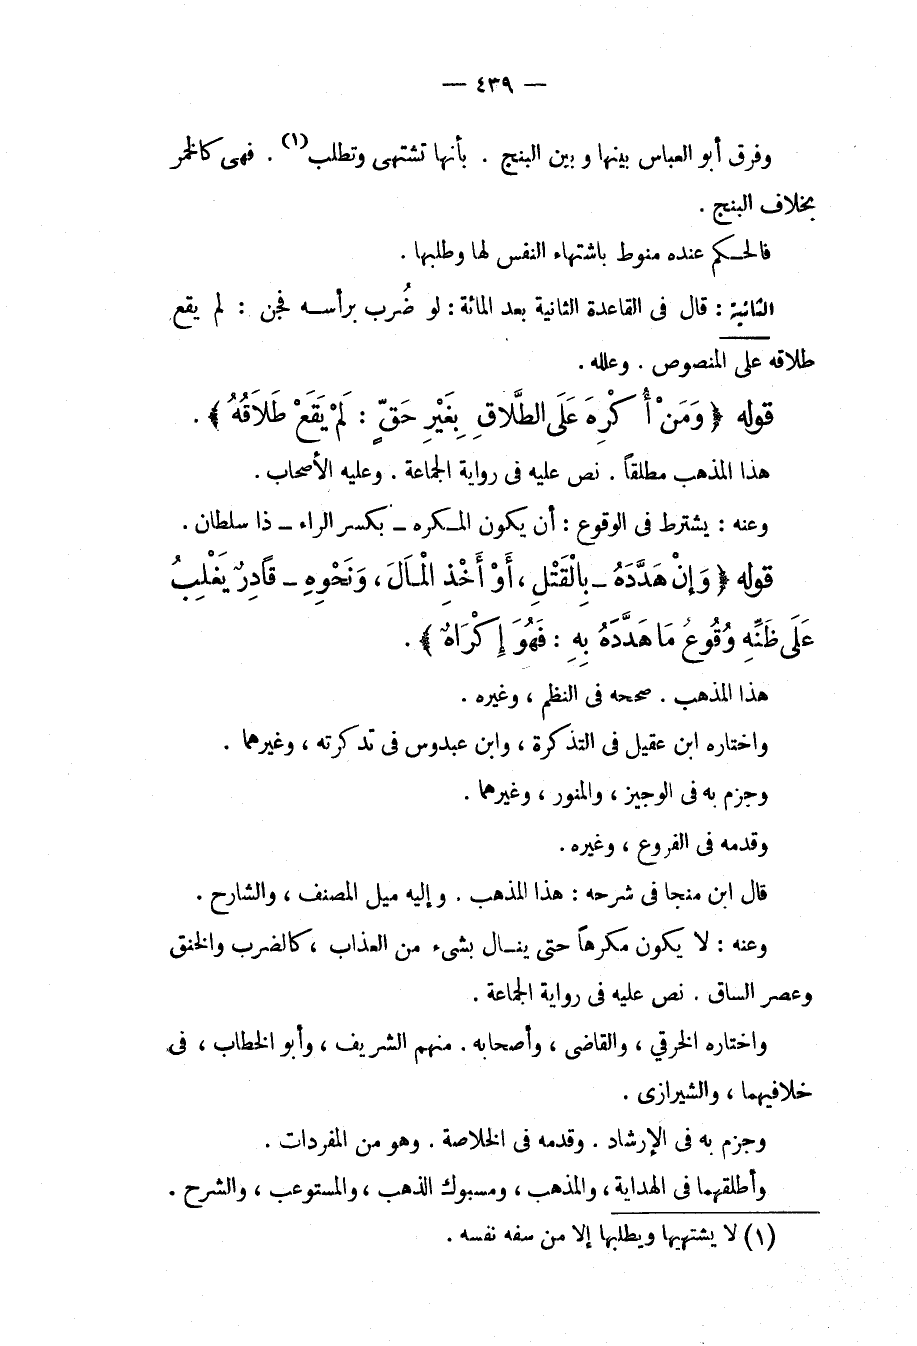 — ٤٣٩ —
وفرق أبو العباس بينها و بين البنج . بأنها تشتهى وتطلب(١) . فهى كالخمر
بخلاف البنج .
فالحكم عنده منوط باشتهاء النفس لها وطلبها .
الثانية : قال فى القاعدة الثانية بعد المائة : لو ضُرب برأسه فجن : لم يقع
طلاقه على المنصوص . وعلله .
قوله ﴿ وَمَنْ أُكْرِهَ عَلَى الطَّلَاقِ بِغَيْرِ حَقٍّ : لَمْ يَقَعْ طَلَاقُهُ ﴾ .
هذا المذهب مطلقاً . نص عليه فى رواية الجماعة . وعليه الأصحاب .
وعنه : يشترط فى الوقوع : أن يكون المكره – بكسر الراء – ذا سلطان .
قوله ﴿ وَإِنْ هَدَّدَهُ – بِالْقَتْلِ ، أَوْ أَخْذِ الْمَالَ ، وَنَحْوِهِ – قَادِرٌ يَغْلِبُ
عَلَى ظَنِّهِ وُقُوعُ مَا هَدَّدَهُ بِهِ : فَهُوَ إِكْرَاهٌ ﴾ .
هذا المذهب . صححه فى النظم ، وغيره .
واختاره ابن عقيل فى التذكرة ، وابن عبدوس فى تذكرته ، وغيرهما .
وجزم به فى الوجيز ، والمنور ، وغيرهما .
وقدمه فى الفروع ، وغيره .
قال ابن منجا فى شرحه : هذا المذهب . وإليه ميل المصنف ، والشارح .
وعنه : لا يكون مكرهاً حتى ينال بشىء من العذاب ، كالضرب والخنق
وعصر الساق . نص عليه فى رواية الجماعة .
واختاره الخرقي ، والقاضى ، وأصحابه . منهم الشريف ، وأبو الخطاب ، فى
خلافيهما ، والشيرازى .
وجزم به فى الإرشاد . وقدمه فى الخلاصة . وهو من المفردات .
وأطلقهما فى الهداية ، والمذهب ، ومسبوك الذهب ، والمستوعب ، والشرح .
(١) لا يشتهيها ويطلبها إلا من سفه نفسه .